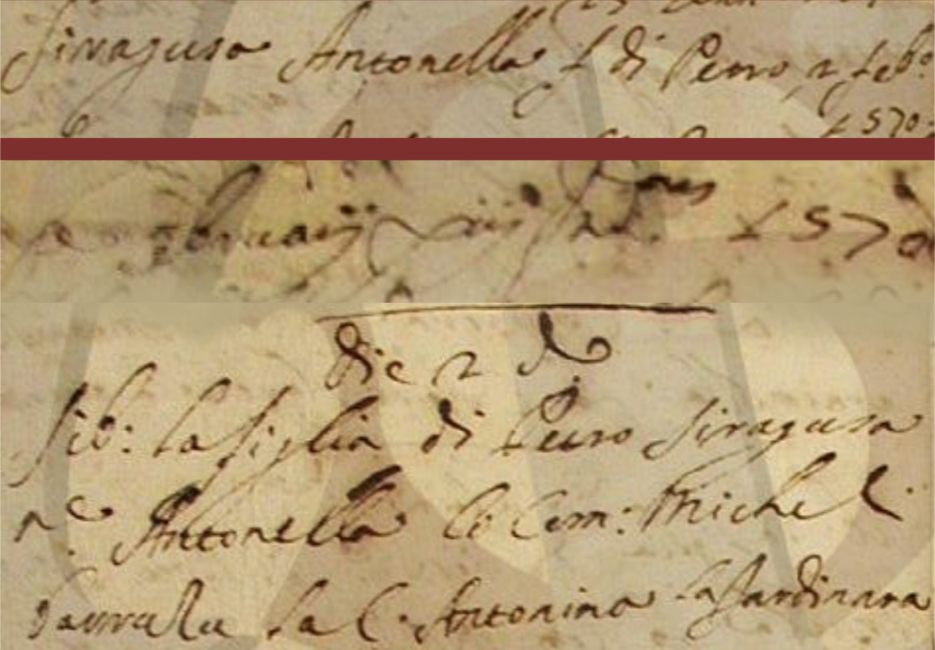 Siragusa Antonella f di Petro 2 feb:
1570.
februarij xiij Ind. 1570
Die 2 do
fib: la figlia di Petro Siragusa
ne. Antonella lo Com: Michel
la C. Antonina la Jardinara